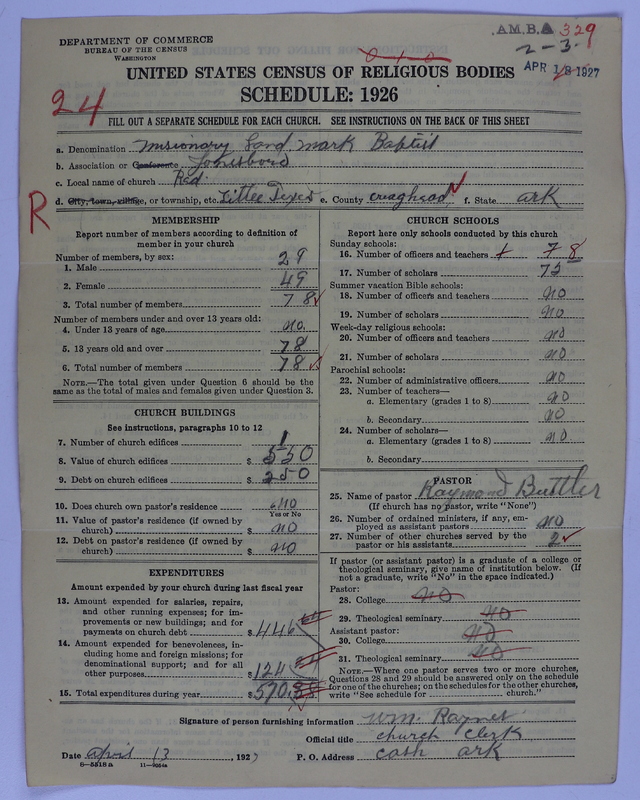 DEPARTMENT OF COMMERCE
BUREAU OF THE CENSUS
WASHINGTON
A.M.B.A 329
2-3-
APR 18 1927
UNITED STATES CENSUS OF RELIGIOUS BODIES
SCHEDULE: 1926
24
FILL OUT A SEPARATE SCHEDULE FOR EACH CHURCH. SEE INSTRUCTIONS ON THE BACK OF THIS SHEET
a. Denomination Missionary Land mark Baptist
b. Association or Conference Jonesboro
c. Local name of church Red
d. City, town, village, or township, etc. Little Texas e. County craghead f. State ark
R
MEMBERSHIP
Report number of members according to definition of member in your church
Number of members, by sex:
1. Male 29
2. Female 49
3. Total number of members 78
Number of members under and over 13 years old:
4. Under 13 years of age no
5. 13 years old and over 78
6. Total number of members 78
NOTE.—The total given under Question 6 should be the same as the total of males and females given under Question 3.
CHURCH BUILDINGS
See instructions, paragraphs 10 to 12
7. Number of church edifices 1
8. Value of church edifices $ 550
9. Debt on church edifices $ 250
10. Does church own pastor's residence no
Yes or No
11. Value of pastor's residence (if owned by church) $ no
12. Debt on pastor's residence (if owned by church) $ no
EXPENDITURES
Amount expended by your church during last fiscal year
13. Amount expended for salaries, repairs, and other running expenses; for improvements or new buildings; and for payments on church debt $ 446
14. Amount expended for benevolences, including home and foreign missions; for denominational support; and for all other purposes $ 124
15. Total expenditures during year $ 570
CHURCH SCHOOLS
Report here only schools conducted by this church
Sunday schools:
16. Number of officers and teachers 7 8
17. Number of scholars 72
Summer vacation Bible schools:
18. Number of officers and teachers no
19. Number of scholars no
Week-day religious schools:
20. Number of officers and teachers no
21. Number of scholars no
Parochial schools:
22. Number of administrative officers no
23. Number of teachers—
a. Elementary (grades 1 to 8) no
b. Secondary no
24. Number of scholars—
a. Elementary (grades 1 to 8) no
b. Secondary
PASTOR
25. Name of pastor Raymond Buttler
(If church has no pastor, write "None")
26. Number of ordained ministers, if any, employed as assistant pastors no
27. Number of other churches served by the pastor or his assistants 2
If pastor (or assistant pastor) is a graduate of a college or theological seminary, give name of institution below. (If not a graduate, write "No" in the space indicated.)
Pastor:
28. College no
29. Theological seminary no
Assistant pastor:
30. College no
31. Theological seminary no
NOTE.—Where one pastor serves two or more churches, Questions 28 and 29 should be answered only on the schedule for one of the churches; on the schedules for the other churches, write "See schedule for church."
Signature of person furnishing information Wm. Rayner
Official title church clerk
Date april 13, 1927 P. O. Address cash ark
8—5518a 11—9054a